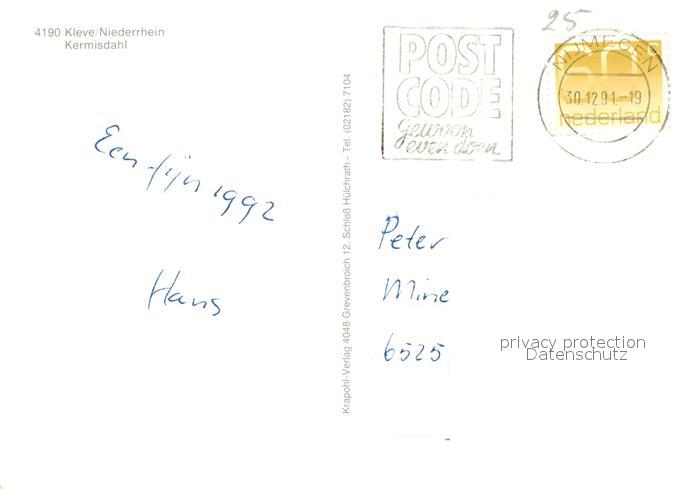 4190 Kleve/Niederrhein
Kermisdahl
25
POST
CODE
gewoon
even doen
NIJMEGEN
60
30.12.91.-19
nederland
Een fijn 1992
Hans
Krapohl-Verlag 4048 Grevenbroich 12, Schloß Hülchrath - Tel. (02182) 7104
Peter
Mine
6525
privacy protection
Datenschutz